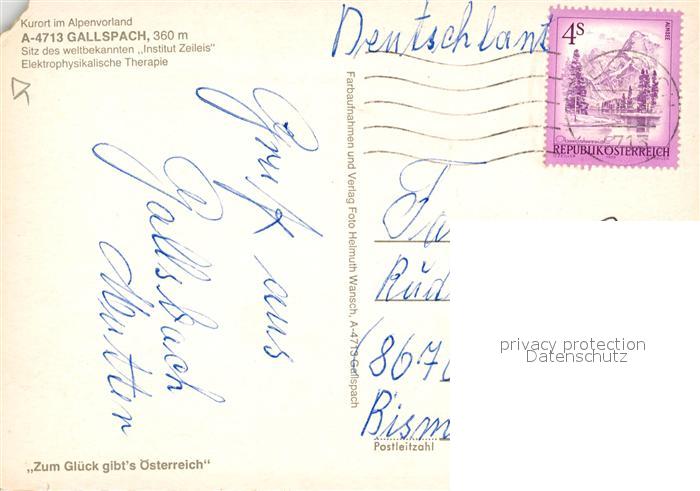 Kurort im Alpenvorland
A-4713 GALLSPACH, 360 m
Sitz des weltbekannten „Institut Zeileis"
Elektrophysikalische Therapie
Deutschland
4S
ALMSEE
REPUBLIK ÖSTERREICH
Gruß aus
Gallsbach
Mutter
Farbaufnahmen und Verlag Foto Helmuth Wansch, A-4713 Gallspach
Fa
Rüd
8670
Bism
Postleitzahl
privacy protection
Datenschutz
„Zum Glück gibt's Österreich"